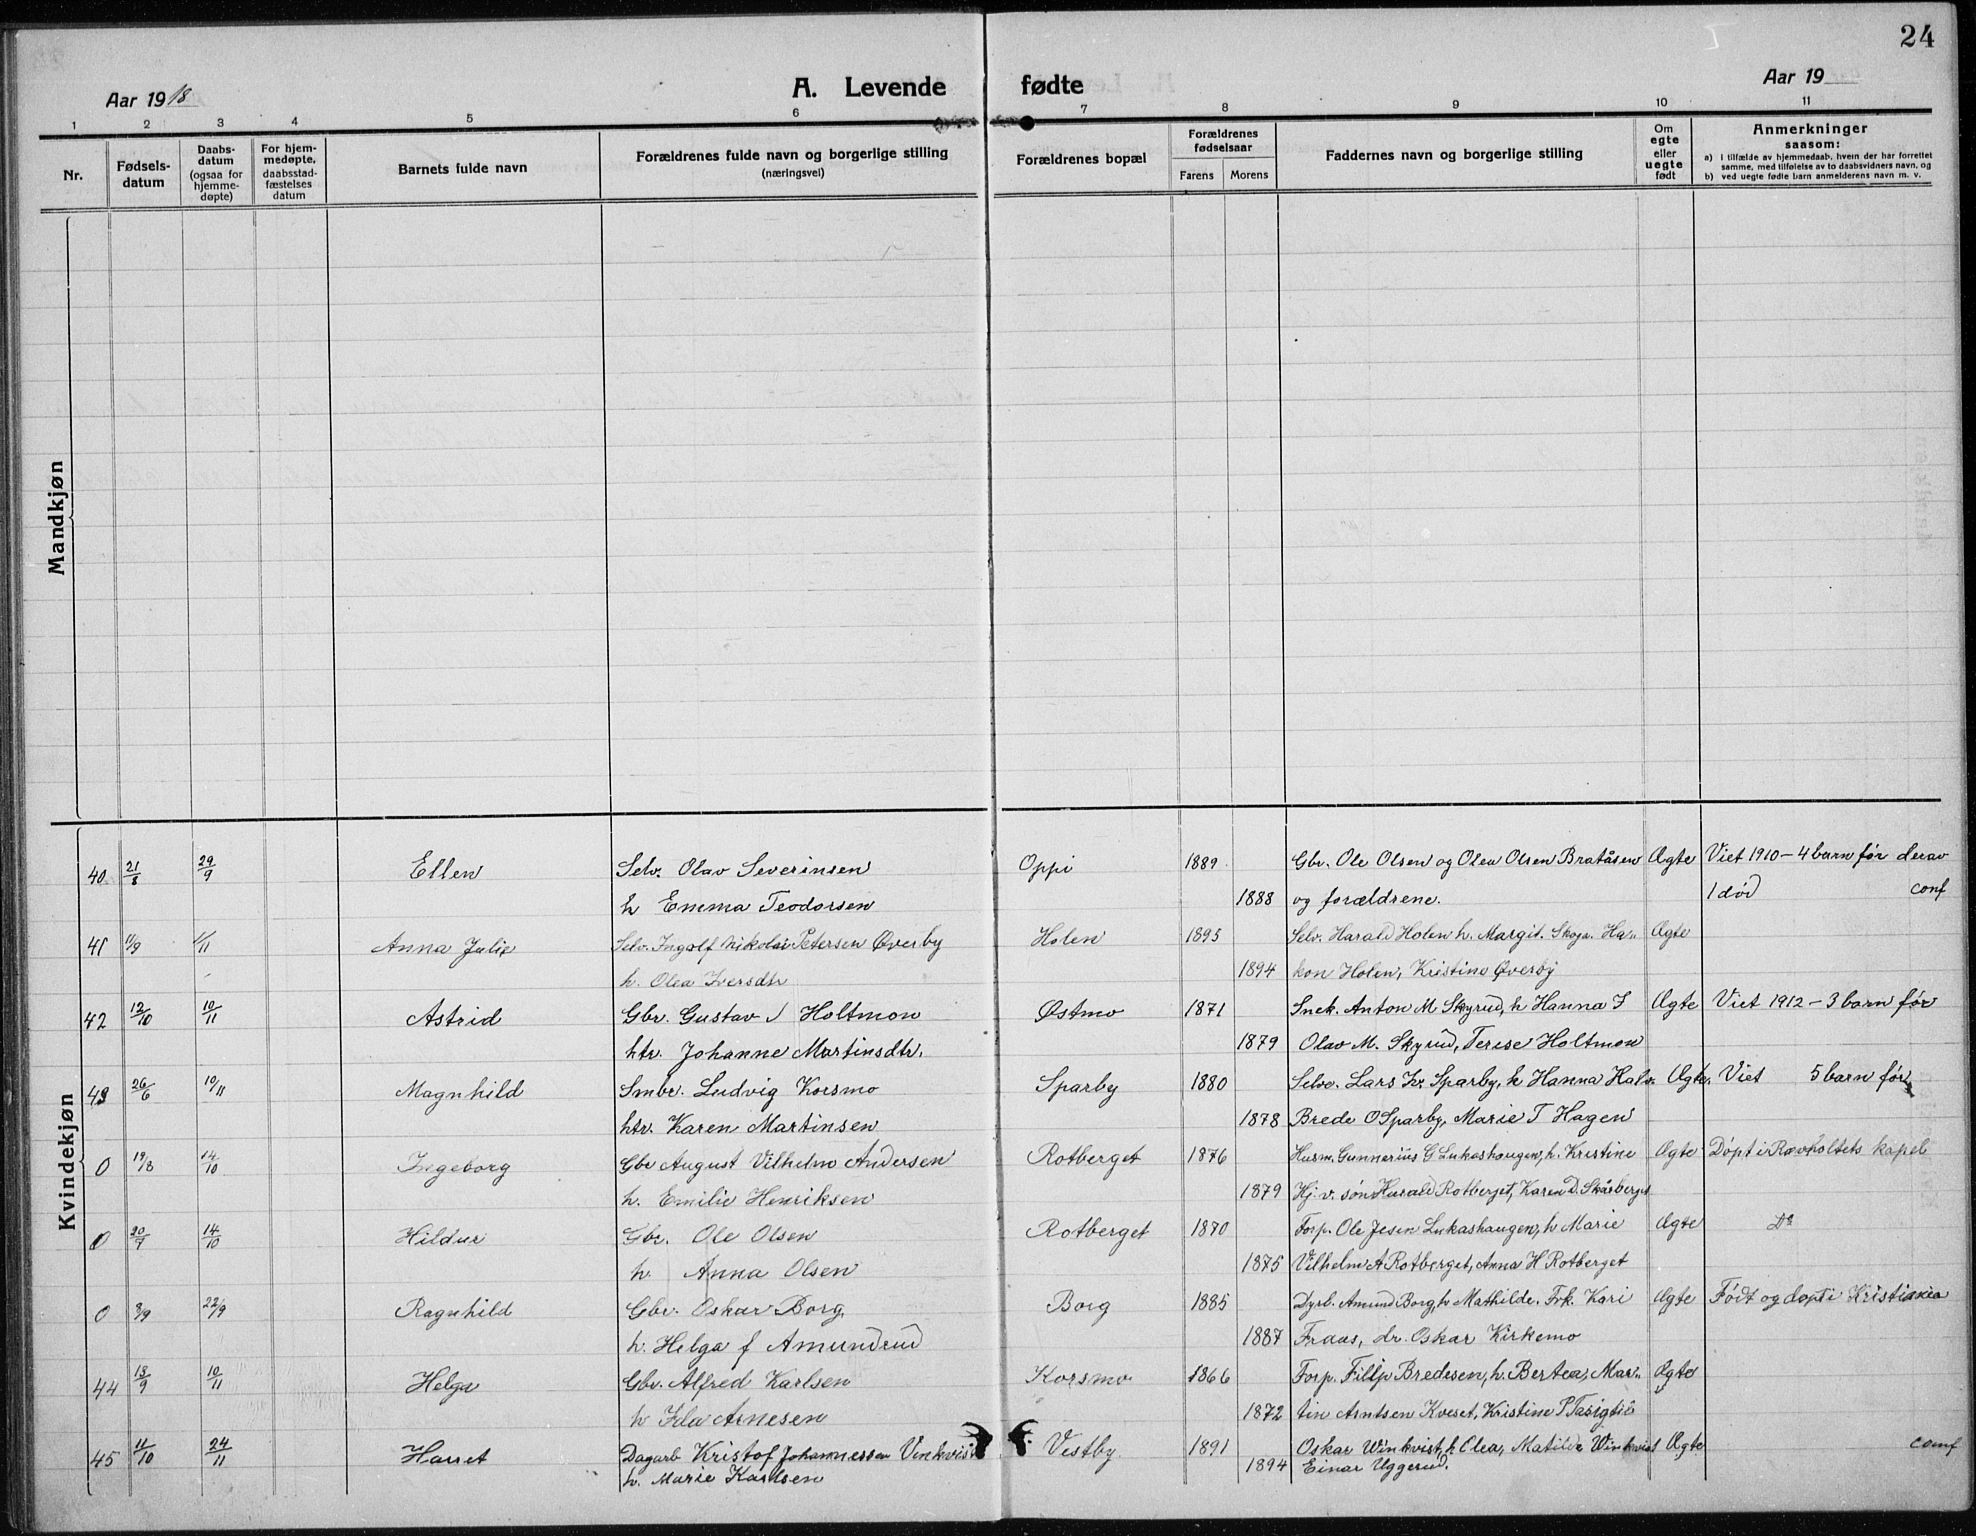 24
Aar 1918
A. Levende fødte
Aar 19
1 2 3 4 5 6 7 8 9 10 11
Nr.
Fødsels-
datum
Daabs-
datum
(ogsaa for
hjemme-
døpte)
For hjem-
medøpte,
daabsstad-
fæstelses
datum
Barnets fulde navn
Forældrenes fulde navn og borgerlige stilling
(næringsvei)
Forældrenes bopæl
Forældrenes
fødselsaar
Farens Morens
Faddernes navn og borgerlige stilling
Om
egte
eller
uegte
født
Anmerkninger
saasom:
a) I tilfælde av hjemmedaab, hvem der har forrettet
samme, med tilføielse av to daabsvidners navn, og
b) ved uegte fødte barn anmelderens navn m. v.
Mandkjøn
Kvindekjøn
40 21/8 29/9 Ellen Selv. Olav Severinsen Oppi 1889 Gbr. Ole Olsen og Olea Olsen Bratåsen Ægte Viet 1910 - 4 barn før derav
h Emma Teodorsen 1888 og forældrene. 1 død conf
41 11/9 1/11 Anna Julie Selv. Ingolf Nikolai Petersen Øverby Holen 1895 Selv. Harald Holen h. Margit. Skoga. Ha- Ægte
h. Olea Iversdtr 1894 kon Holen, Kristine Øverby
42 12/10 10/11 Astrid Gbr. Gustav J Holtmon Østmo 1871 Snek. Anton M Skyrud, h Hanna J Ægte Viet 1912 - 3 barn før
htr. Johanne Martinsdtr. 1879 Olav M. Skyrud, Terese Holtmon
43 26/6 10/11 Magnhild Smbr. Ludvig Korsmo Sparby 1880 Selve. Lars Kr. Sparby, h Hanna Halv. Ægte. Viet 5 barn før
htr. Karen Martinsen 1878 Brede O Sparby, Marie T Hagen
0 19/8 14/10 Ingeborg Gbr August Vilhelm Andersen Rotberget 1876 Husm. Gunnarius G Lukashaugen, h. Kristine Ægte Døpt i Ravholtets kapel
h. Emilie Henriksen 1879 Hj. v. søn Harald Rotberget, Karen D. Skårberget
0 20/7 14/10 Hildur Gbr. Ole Olsen Rotberget 1870 Forp. Ole Jesen Lukashaugen, h Marie Ægte Do
h. Anna Olsen 1875 Vilhelm A Rotberget, Anna H Rotberget
0 8/9 22/9 Ragnhild Gbr. Oskar Borg, Borg 1885 Dyrl. Amund Borg, h Mathilde. Frk. Kari Ægte Født og døpt i Kristiania
h. Helga f Amundrud 1887 Fraas, dr. Oskar Kirkemo
44 13/9 10/11 Helga Gbr. Alfred Karlsen Korsmo 1866 Forp. Fillip Bredesen, h. Bertea, Mar- Ægte
h Ida Arnesen 1872 tin Arntsen Kveset, Kristine P
45 11/10 24/11 Harret Dagarb Kristof Johannessen Vinkvist Vestby 1891 Oskar Winkvist, h Olea, Matilde Winkvist Ægte conf
h. Marie Karlsen 1894 Einar Uggerud.